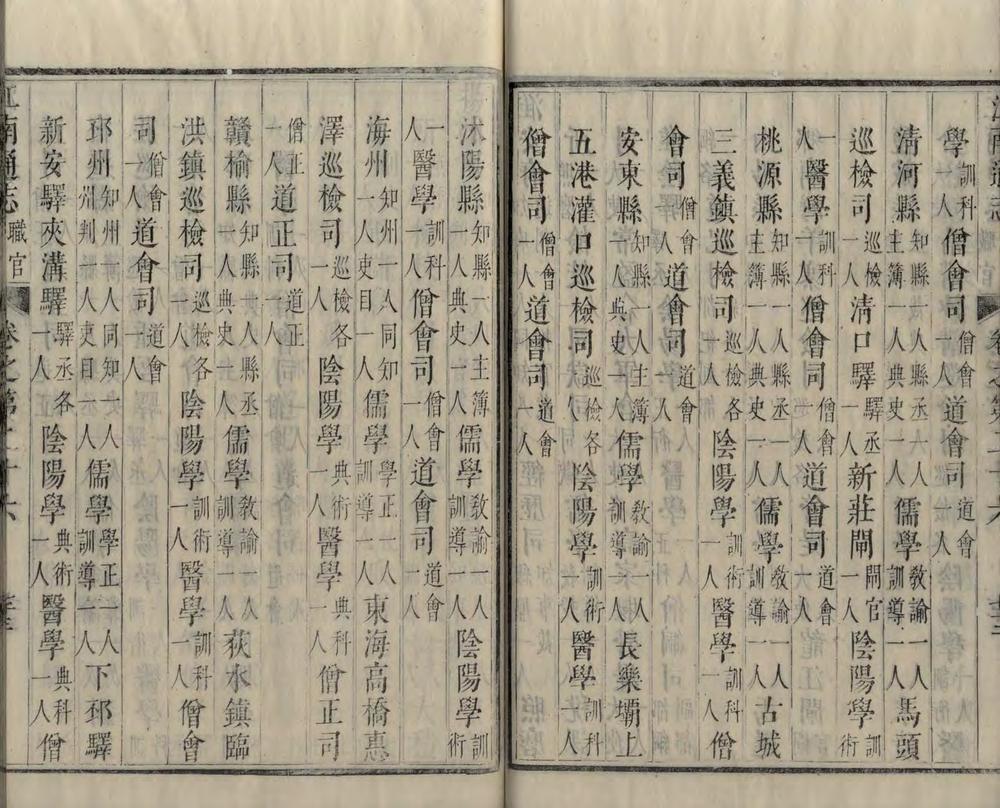 學訓科一人僧會司僧會一人道會司道會一人
清河縣知縣一人縣丞六人主簿一人典史一人儒學教諭一人訓導一人馬頭
巡檢司巡檢一人清口驛驛丞一人新莊閘閘官一人陰陽學訓術
一人醫學訓科一人僧會司僧會一人道會司道會一人
桃源縣知縣一人縣丞一人主簿一人典史一人儒學教諭一人訓導一人古城
三義鎮巡檢司巡檢各一人陰陽學訓術一人醫學訓科一人僧
會司僧會一人道會司道會一人
安東縣知縣一人主簿一人典史一人儒學教諭一人訓導一人長樂壩上
五港灌口巡檢司巡檢各一人陰陽學訓術一人醫學訓科一人
僧會司僧會一人道會司道會一人
沭陽縣知縣一人主簿一人典史一人儒學教諭一人訓導一人陰陽學訓術
一人醫學訓科一人僧會司僧會一人道會司道會一人
海州知州一人同知一人吏目一人儒學學正一人訓導一人東海高橋惠
澤巡檢司巡檢各一人陰陽學典術一人醫學典科一人僧正司
僧正一人道正司道正一人
贛榆縣知縣一人縣丞一人典史一人儒學教諭一人訓導一人荻水鎮臨
洪鎮巡檢司巡檢各一人陰陽學訓術一人醫學訓科一人僧會
司僧會一人道會司道會一人
邳州知州一人同知一人州判一人吏目一人儒學學正一人訓導一人下邳驛
新安驛夾溝驛驛丞各一人陰陽學典術一人醫學典科一人僧
江南通志 職官 卷之第二十六